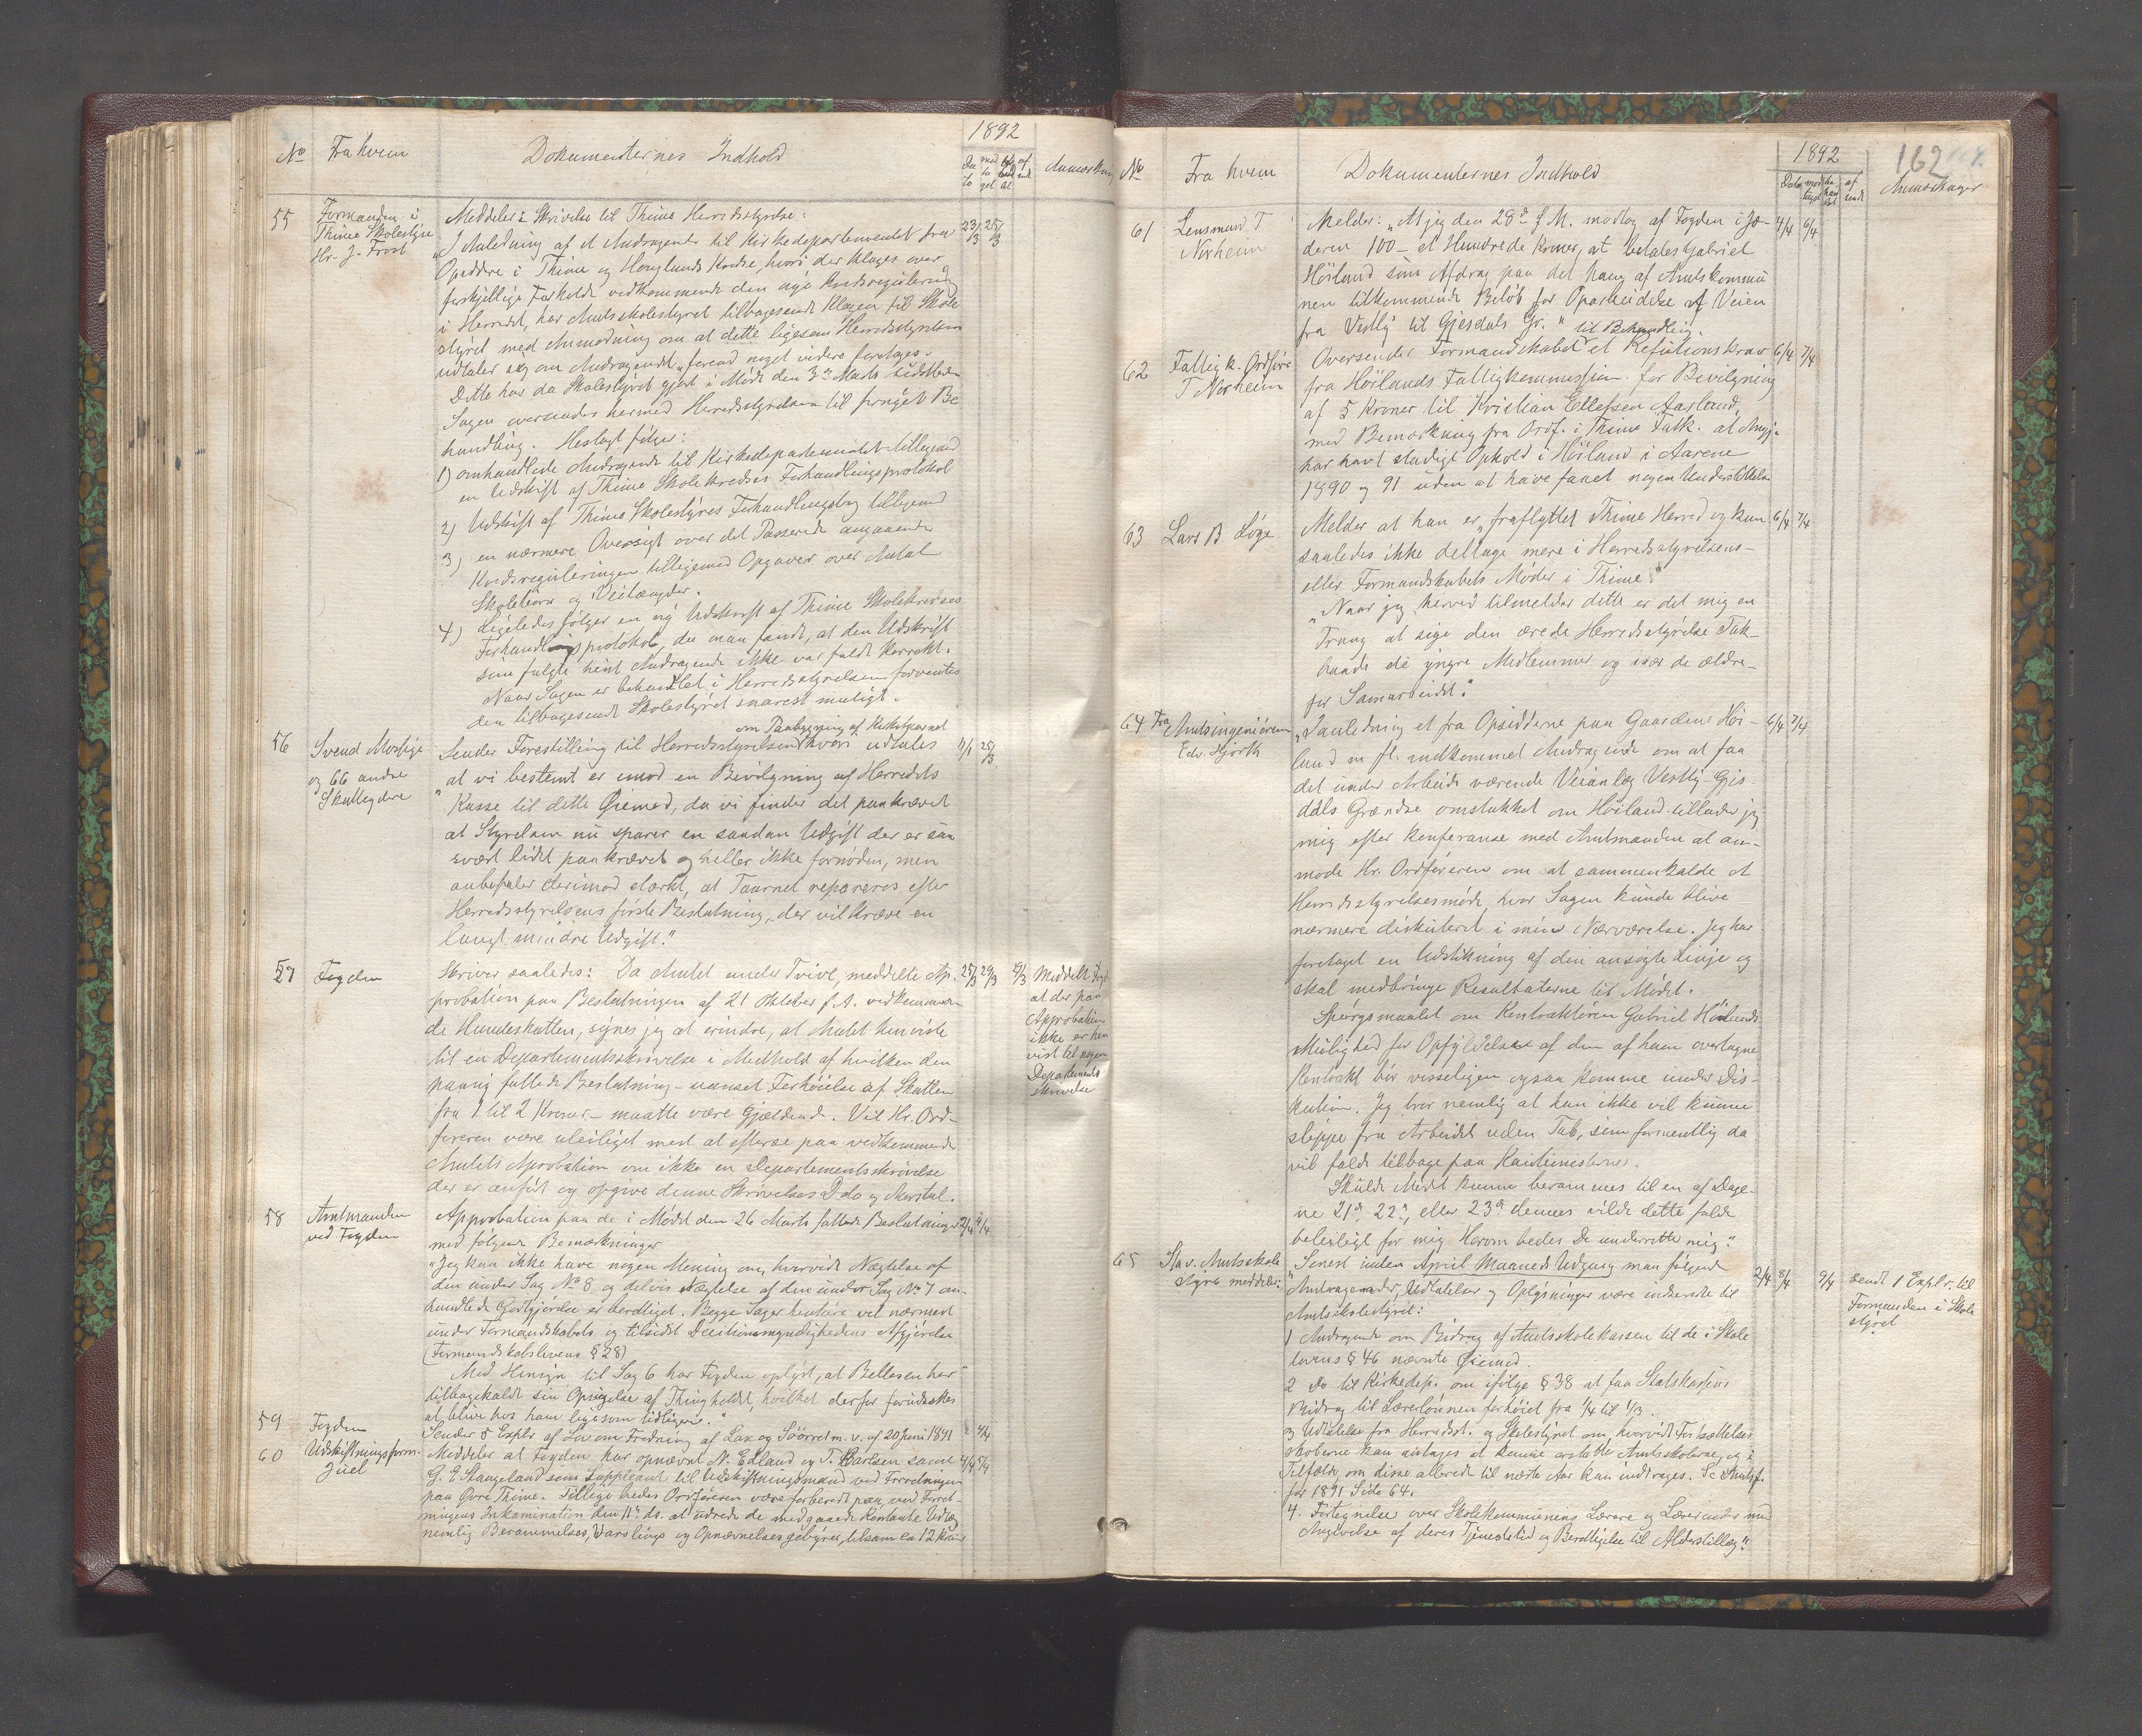 1892
No Fra hvem Dokumenternes Indhold Dato modtaget behandlet afsendt Anmærkning
55 Formanden i Thime Skolestyre Hr. J. Frost
Meddeler i Skrivelse til Thime Herredsstyrelse: 23/3 25/3
"I Anledning af et Andragende til Kirkedepartementet fra
Opsiddere i Thime og Høylands Kredse, hvori der klages over
forskjellige Forholde vedkommende den nye Kredsregulering
i Herredet, har Amtsskolestyret tilbagesendt Klagen til Skole
styret med Anmodning om at dette ligesom Herredsstyrelsen
udtaler sig om Andragendet, forend noget videre foretages.
Dette har da Skolestyret gjort i Møde den 3die Marts sidstleden
Sagen oversendes hermed Herredsstyrelsen til Be
handling. Heslagt følger:
1) omhandlede Andragende til Kirkedepartementet tilligemed
en Udskift af Thime Skolekredses Forhandlingsprotokol
2) Udskift af Thime Skolestyres Forhandlingsbog tilligemed
3) en nærmere Oversigt over det Passerede angaaende
Kredsreguleringen tilligemed Opgaver over Antal
Skolebørn og Veilængder.
4) Ligeledes følger en ny Udskrift af Thime Skolekredses
Forhandlingsprotokol, da man fandt, at den Udskrift
som fulgte hint Andragende ikke var fuldt korrekt.
Naar Sagen er behandlet i Herredsstyrelsen forventes
den tilbagesendt Skolestyret snarest muligt.
56 Svend Mossige og 66 andre Skatteydere
om Paabygning af Kirketaarnet
Sender Forestilling til Herredsstyrelsen hvori udtales 11/1 25/3
"at vi bestemt er imod en Bevilgning af Herredets
Kasse til dette Øiemed, da vi finder det paakrævet
at Styrelsen nu sparer en saadan Udgift der er saa
svært lidet paakrævet og heller ikke fornøden, men
anbefaler derimod stærkt, at Taarnet repareres efter
Herredsstyrelsens første Beslutning, der vil kræve en
langt mindre Udgift."
57 Fogden
Skriver saaledes: Da Amtet under Tvivl, meddelte Ap- 25/3 29/3
probation paa Beslutningen af 21 Oktober f. A. vedkommen
de Hundeskatten, synes jeg at erindre, at Amtet henviste
til en Departementsskrivelse i Medhold af hvilken den
paany fattede Beslutning – uanset Forhøielse af Skatten
fra 1 til 2 Kroner – maatte være Gjældende. Vil Hr. Ord-
føreren være uleiliget med at efterse paa vedkommende
Amtets Aprobation om ikke en Departementsskrivelse
der er anført og opgive denne Skrivelses Dato og Nerstal.
Meddelt Fogd
at der paa
Approbation
ikke er hen
vist til nogen
Departements
skrivelse
58 Amtmanden ved Fogden
Approbation paa de i Mødet den 26 Marts fattede Beslutninger 2/4 4/4
med følgende Bemærkninger
"Jeg kan ikke have nogen Mening om, hvorvidt Nægtelse af
den under Sag No 8 og delvis Nægtelse af den under Sag No 7 om-
handlede Godtgjørelse er berettiget. Begge Sager henhøre vel nærmest
under Formandskabets og tilsidst Decitionsmyndighedens Afgjørelse
(Formandskabslovens § 28)
Med Hensyn til Sag 6 har Fogden oplyst, at Bellesen har
tilbagekaldt sin Opsigelse af Thingholdt, hvilket derfor forudsættes
at blive hos ham ligesom tidligere."
59 Fogden
Sender 5 Explr af Lov om Fredning af Lax og Søørret m. v. af 20 Juni 1891 4/4
60 Udskiftningsform. Juel
Meddeler at Fogden har opnævnt N. Edland og T. Bartsen samt 4/4 5/4
G. E Stangeland som Suppleant til Udskiftningsmænd ved Forretningen
paa Øvre Thime. Tillige bedes Ordføreren være forberedt paa, ved Forret-
ningens Inkamination den 11te ds. at udrede de medgaaede kontante Udlæg
nemlig Berammelses, Varslings og Opnævnelsesgebyrer, tilsam ca 12 Kroner
1892 162
No Fra hvem Dokumenternes Indhold Dato modtaget behandlet afsendt Anmærkninger
61 Lensmand T Norheim
Melder: "At jeg den 28de f. M. modtog af Fogden i Jæ- 4/4 6/4
deren 100 – et Hundrede Kroner, at betales Gabriel
Høiland som Afdrag paa det ham af Amtskommu
nen tilkommende Beløb for Oparbeidelse af Veien
fra Vestly til Gjesdals Gr."
62 Fattigk. Ordfører T Norheim
til Behandling.
Oversender Formandskabet et Refutionskrav 6/4 7/4
fra Høilands Fattigkommission for Bevilgning
af 5 Kroner til Kristian Ellefsen Aasland,
med Bemærkning fra Ordf. i Thime Fattk. at Angj.
har havt stadigt Ophold i Høiland i Aarene
1890 og 91 uden at have faaet nogen Understøttelse
63 Lars B. LØge
Melder at han er "fraflyttet Thime Herred og kan 6/4 7/4
saaledes ikke deltage mere i Herredsstyrelsens-
eller Formandskabets Møder i Thime"
"Naar jeg herved tilmelder dette er det mig en
Trang at sige den ærede Herredsstyrelse Tak-
baade de yngre Medlemmer og især de ældre-
for Samarbeidet."
64 Fra Amtsingeniøren Edv. Hjorth
"I Anledning et fra Opsidderne paa Gaardene Høi- 6/4 7/4
land m fl. indkommet Andragende om at faa
det under Arbeide værende Veianlæg Vestly–Gjes
dals Grændse omstukket om Høiland tillader jeg
mig efter Konferanse med Amtmanden at an-
mode Hr. Ordføreren om at sammenkalde et
Herredsstyrelsesmøde, hvor Sagen kunde blive
nærmere diskuteret i min Nærværelse. Jeg har
foretaget en Udstikning af den ansøgte Linje og
skal medbringe Resultaterne til Mødet.
Spørgsmaalet om Kontraktøren Gabriel Høilands
Mulighed for Opfyldelsen af den af ham overtagne
Kontrakt bør visseligen ogsaa komme under Dis-
kution. Jeg tror nemlig at han ikke vil kunne
slippe fra Arbeidet uden Tab, som formentlig da
vil falde tilbage paa Kautionisterne.
Skulde Mødet kunne berammes til en af Dage-
ne 21de, 22de, eller 23de dennes vilde dette falde
beleiligt for mig Herom bedes De underrette mig."
65 Stav. Amtsskolestyre meddeler:
"Senest inden April Maaneds Udgang maa følgende 2/4 8/4
Andragender, Udtalelser og Oplysninger være indsendte til
Amtsskolestyret:
1 Andragende om Bidrag af Amtsskolekassen til de i Skole
lovens § 46 nævnte Øiemed.
2 Do til Kirkedep. om ifølge § 38 at faa Statskassens
Bidrag til Lærerlønnen forhøiet fra 1/4 til 1/3.
3 Udtalelse fra Herredsst. og Skolestyret om, hvorvidt Fortsættelses
skolerne kan antages at kunne erstatte Amtsskolerne, og i
Tilfælde om disse allerede til næste Aar kan inddrages. Se Amtsf.
for 1891 Side 64.
4. Fortegnelse over Skolekommunens Lærere og Lærerinder med
Angivelse af deres Tjenestetid og Berettigelse til Alderstillæg."
9/4 sendt 1 Expl. til
Formanden i Skole
styret